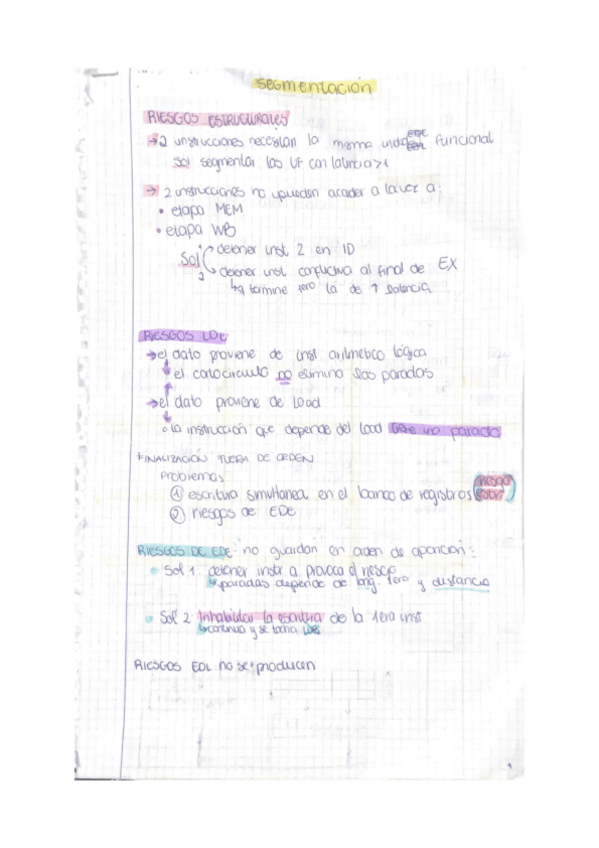 segmentación
RIESGOS ESTRUCTURALES
→ 2 instrucciones necesitan la misma unidad funcional
Sol segmentar las UF con latencia>1
→ 2 instrucciones no pueden acceder a la vez a:
• etapa MEM
• etapa WB
Sol
1 detener inst 2 en ID
2 detener inst. conflictiva al final de EX
↳ termine 1ero la de ↑
RIESGOS LDE
→ el dato proviene de inst aritmetico lógica
el cortocircuito no elimina las paradas
→ el dato proviene de Load
o la instrucción que depende del load una parada
FINALIZACIÓN FUERA DE ORDEN
Problemas
① escritura simultanea en el banco de registros riesgo estr.
② riesgos de EDE
RIESGOS DE EDE: no guardan en orden de aparición:
• Sol 1: detener instr q provoca el riesgo
↳ paradas depende de long. 1era y distancia
• Sol 2: Inhabilitar la escritura de la 1era inst
↳ continua y se tacha WB
RIESGOS EDL no se producen